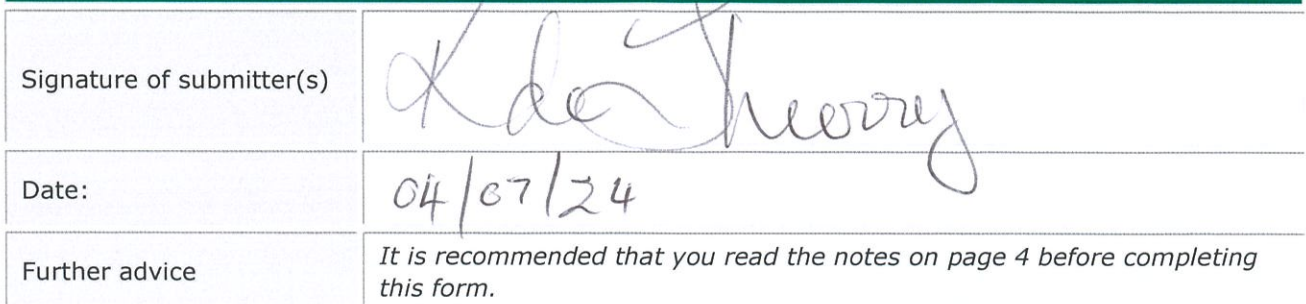 Signature of submitter(s)
Date:
04/07/24
Further advice
It is recommended that you read the notes on page 4 before completing
this form.